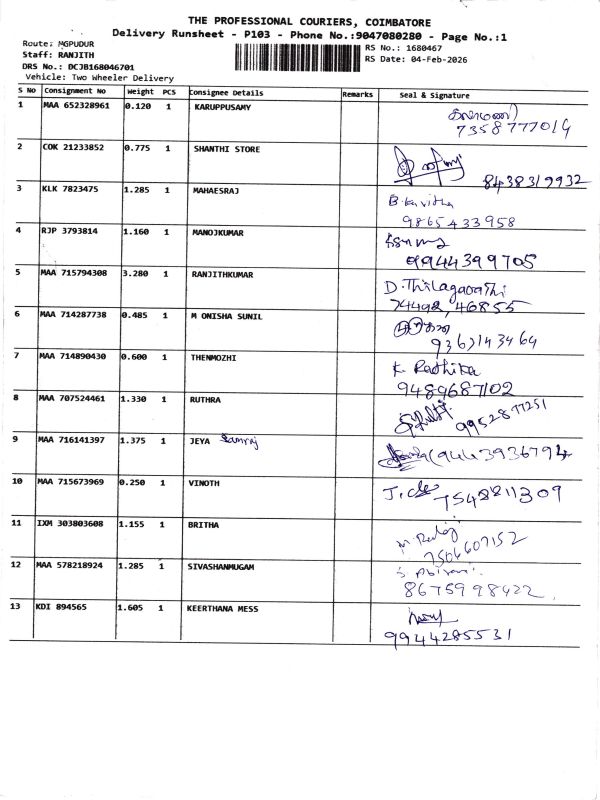 THE PROFESSIONAL COURIERS, COIMBATORE
Delivery Runsheet - P103 - Phone No.:9047080280 - Page No.:1
Route: MGPUDUR
Staff: RANJITH
DRS No.: DCJB168046701
Vehicle: Two Wheeler Delivery
RS No.: 1680467
RS Date: 04-Feb-2026
S No Consignment No Weight PCS Consignee Details Remarks Seal & Signature
1 MAA 652328961 0.120 1 KARUPPUSAMY
73587770
2 COK 21233852 0.775 1 SHANTHI STORE
8438319932
3 KLK 7823475 1.285 1 MAHAESRAJ B. Kavitha
9865433958
4 RJP 3793814 1.160 1 MANOJKUMAR
9944399705
5 MAA 715794308 3.280 1 RANJITHKUMAR D. Thilagavathi
74492, 46855
6 MAA 714287738 0.485 1 M ONISHA SUNIL
7 MAA 714890430 0.600 1 THENMOZHI K. Radhika
9489687102
8 MAA 707524461 1.330 1 RUTHRA
9952877251
9 MAA 716141397 1.375 1 JEYA
9443936794
10 MAA 715673969 0.250 1 VINOTH
7548811309
11 IXM 303803608 1.155 1 BRITHA
7506607152
12 MAA 578218924 1.285 1 SIVASHANMUGAM S. Abirami
8675998422
13 KDI 894565 1.605 1 KEERTHANA MESS
9944285531